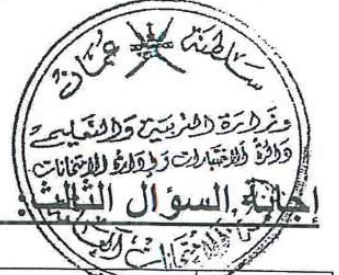 سلطنة عمان
وزارة التربية والتعليم
دائرة الاختبارات وإدارة الامتحانات
إجابة السؤال الثالث: